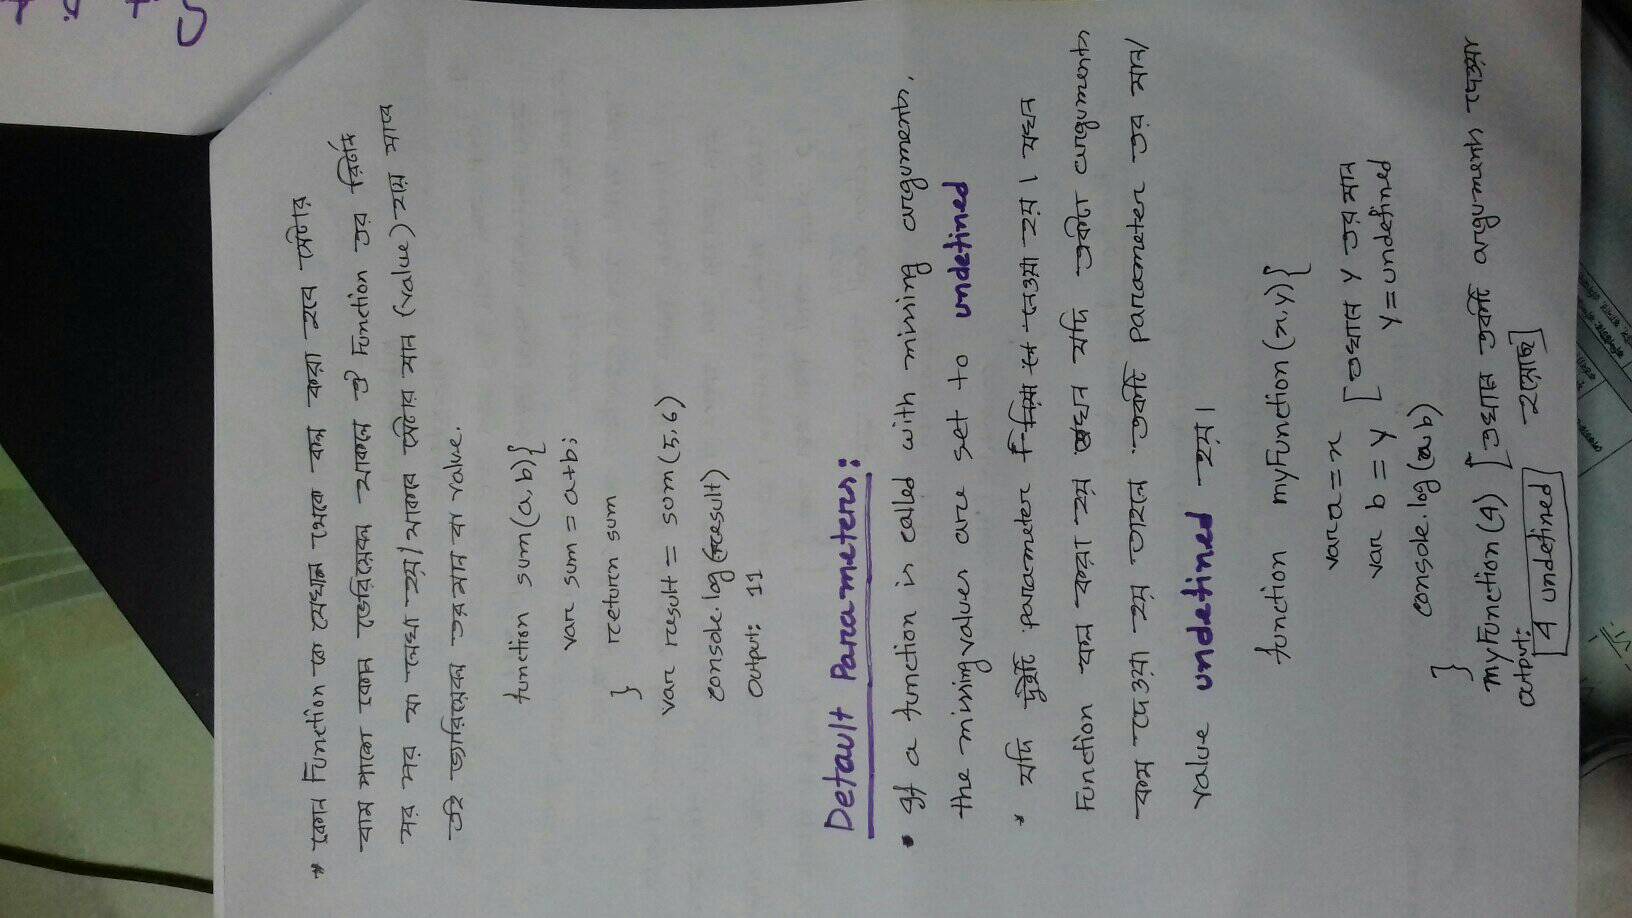 * কোন Function কে যেখান থেকে কল করা হবে সেটার
বাম পাশে কোন ভেরিয়েবল থাকলে ঐ Function এর রিটার্ন
এর পর যা লেখা হয়/থাকবে সেটার মান (value) হয় সাথে
ঐ ভ্যারিয়েবল এর মান বা value.
function sum(a,b){
var sum = a+b;
return sum
}
var result = sum(5,6)
console.log(result)
output: 11
Default Parameters:
• If a function is called with missing arguments,
the missing values are set to undefined
* যদি দুইটি parameter নিয়ে দেওয়া হয়। যখন
Function কল করা হয় তখন যদি একটা arguments
কম দেওয়া হয় তাহলে একটি parameter এর মান/
value undefined হয়।
function myFunction(x,y){
var a=x
var b=y [এখানে y এর মান
y=undefined
console.log(a,b)
}
myFunction(4) [এখানে একটি arguments দেওয়া
হয়েছে]
output:
4 undefined